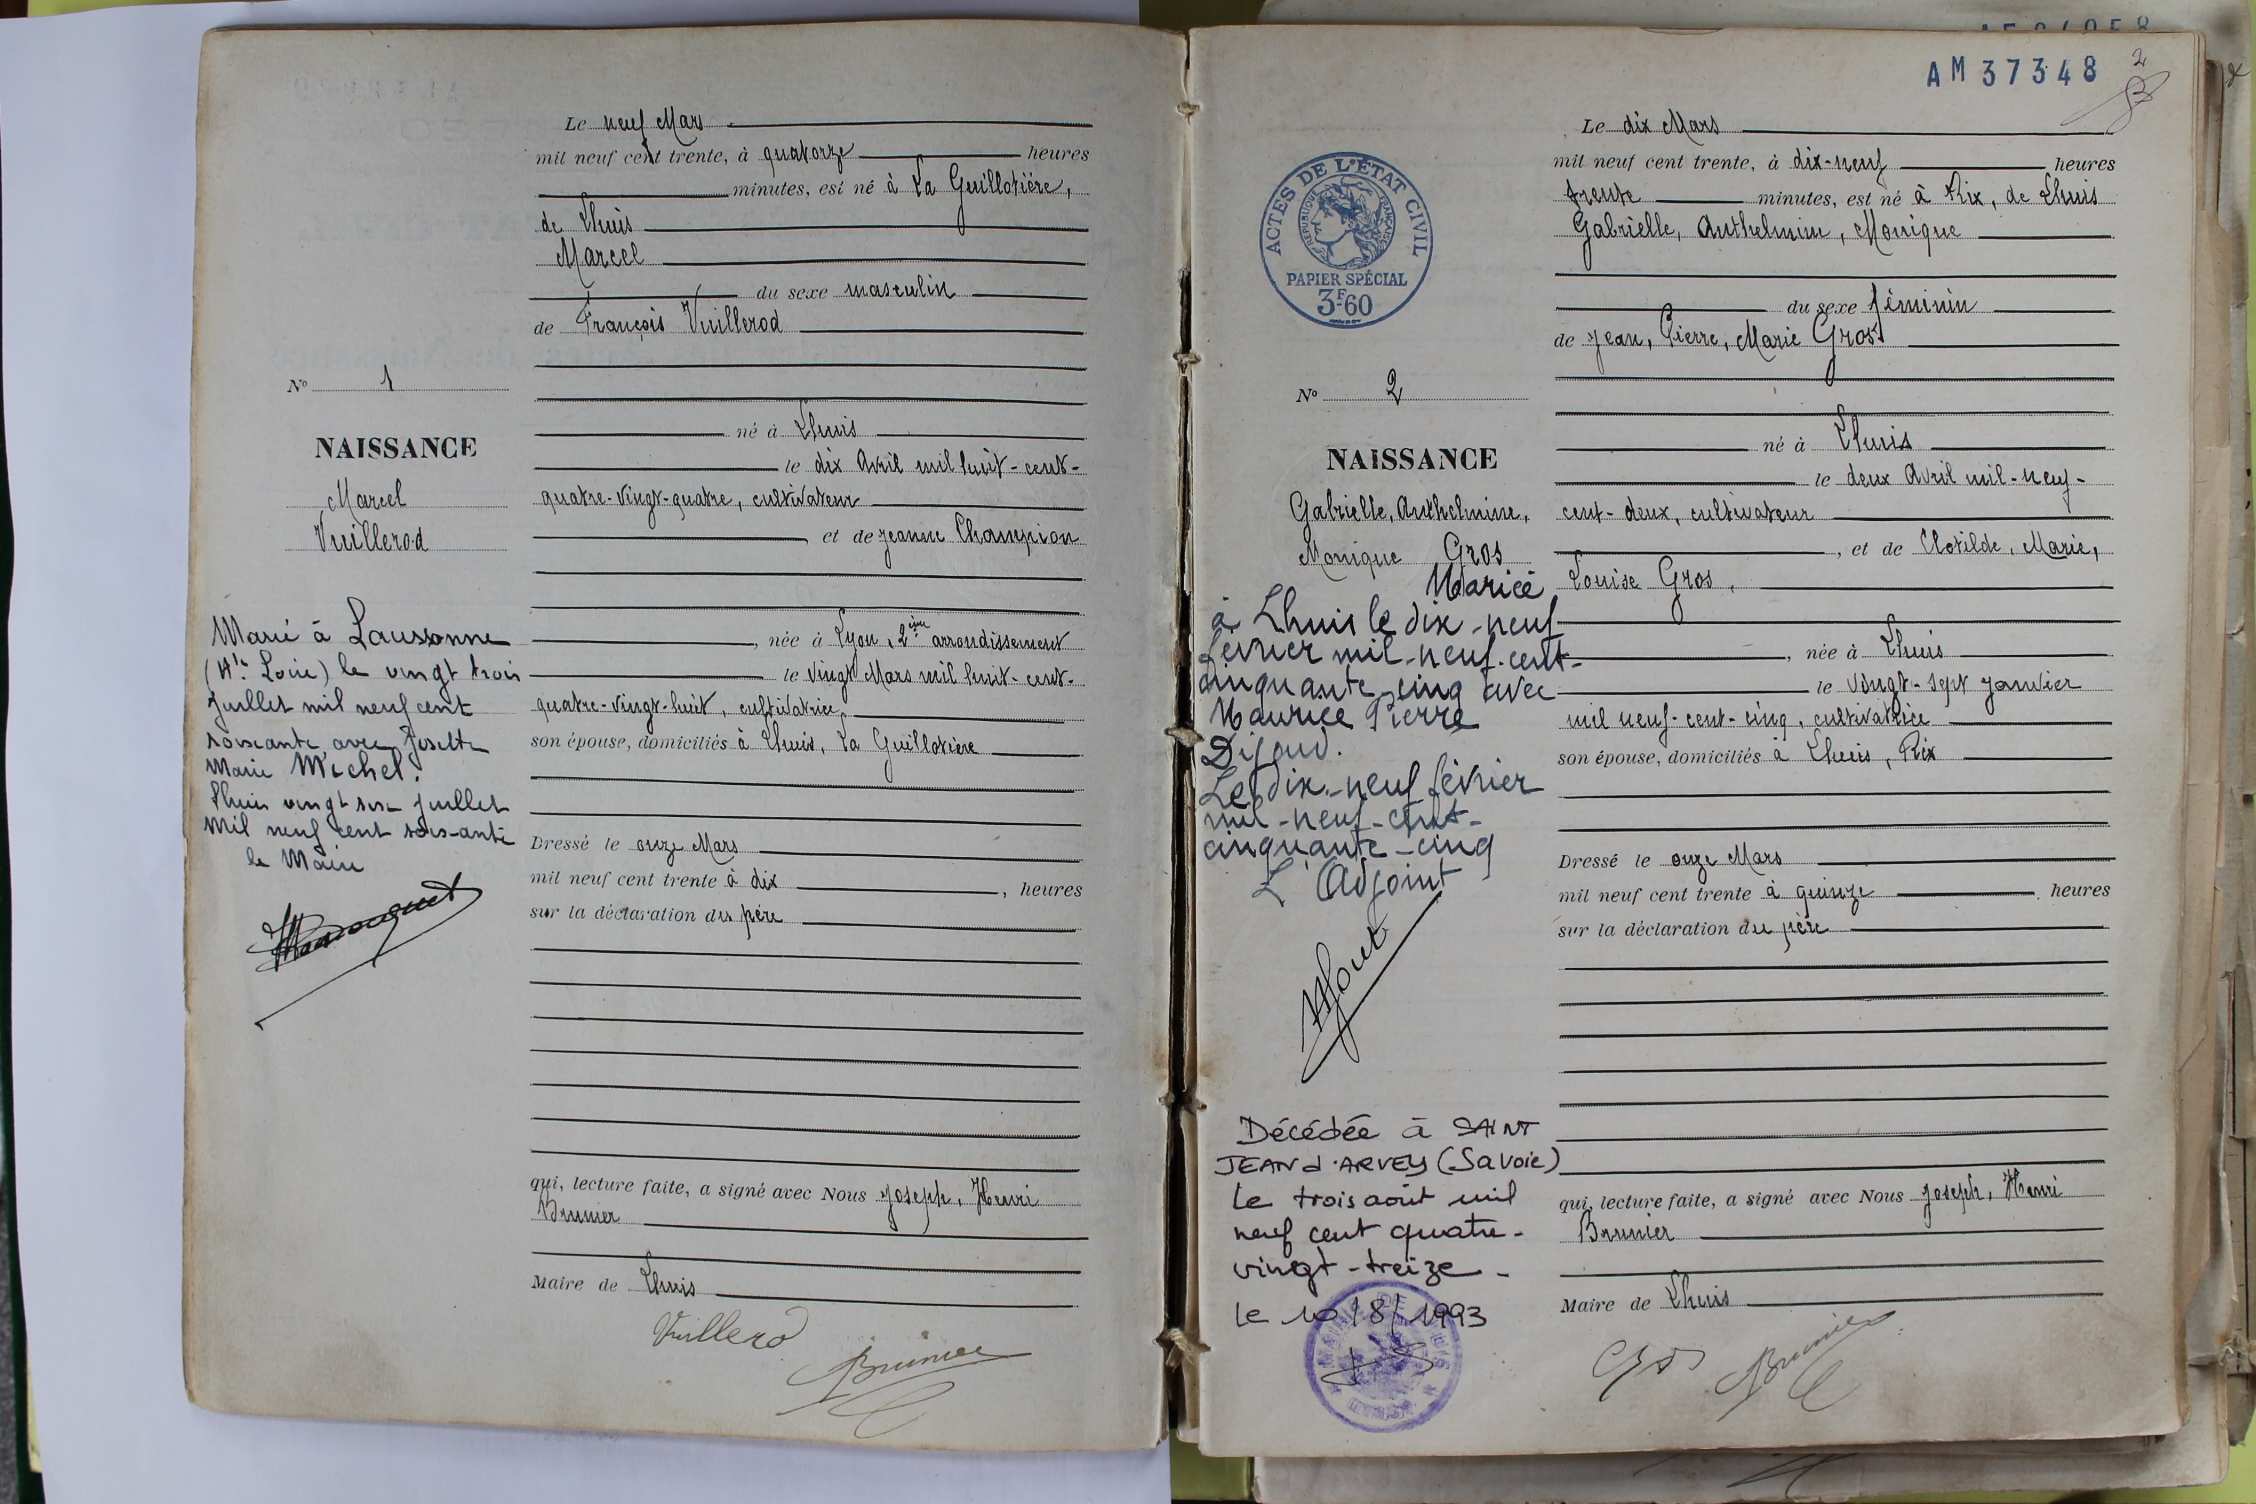 Le neuf Mars
mil neuf cent trente, à quatorze heures
minutes, est né à La Guillotière,
de Lhuis
Marcel
du sexe masculin
de François Vuillerod
né à Lhuis
le dix Avril mil huit-cent-
quatre-vingt-quatre, cultivateur
et de Jeanne Champion
, née à Lyon, 2ème arrondissement
le vingt Mars mil huit-cent-
quatre-vingt-huit, cultivatrice,
son épouse, domiciliés à Lhuis, La Guillotière
Dressé le onze Mars
mil neuf cent trente à dix , heures
sur la déclaration du père
qui, lecture faite, a signé avec Nous Joseph, Henri
Brunier
Maire de Lhuis
Vuillerod
Brunier
No 1
NAISSANCE
Marcel
Vuillerod
Marié à Laussonne
(Hte Loire) le vingt trois
juillet mil neuf cent
soixante avec Josette
Marie Michel.
Lhuis vingt six juillet
mil neuf cent soixante
le Maire
AM37348
2
Le dix Mars
mil neuf cent trente, à dix-neuf heures
trente minutes, est né à Rix, de Lhuis
Gabrielle, Anthelmine, Monique
du sexe féminin
de Jean, Pierre, Marie Gros
né à Lhuis
le deux Avril mil-neuf-
cent-deux, cultivateur
, et de Clotilde, Marie,
Louise Gros,
, née à Lhuis
le vingt-sept janvier
mil neuf-cent-cinq, cultivatrice
son épouse, domiciliés à Lhuis, Rix
Dressé le onze Mars
mil neuf cent trente à quinze heures
sur la déclaration du père
qui, lecture faite, a signé avec Nous Joseph, Henri
Brunier
Maire de Lhuis
Gros
Brunier
ACTES DE L'ÉTAT CIVIL
RÉPUBLIQUE FRANÇAISE
PAPIER SPÉCIAL
3F60
No 2
NAISSANCE
Gabrielle, Anthelmine,
Monique Gros
Mariée
à Lhuis le dix-neuf
février mil-neuf-cent-
cinquante-cinq avec
Maurice Pierre
Dijoud.
Le dix-neuf février
mil-neuf-cent-
cinquante-cinq
L'Adjoint
Décédée à SAINT
JEAN d'ARVEY (Savoie)
Le trois août mil
neuf cent quatre-
vingt-treize-
le 10/8/1993
MAIRIE DE LHUIS